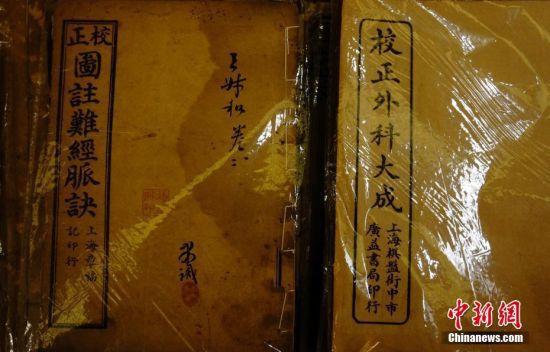 校正
圖註難經脈訣
上海
記印行
王叔和卷二
校正外科大成
上海棋盤街中市
廣益書局印行
中新网
Chinanews.com